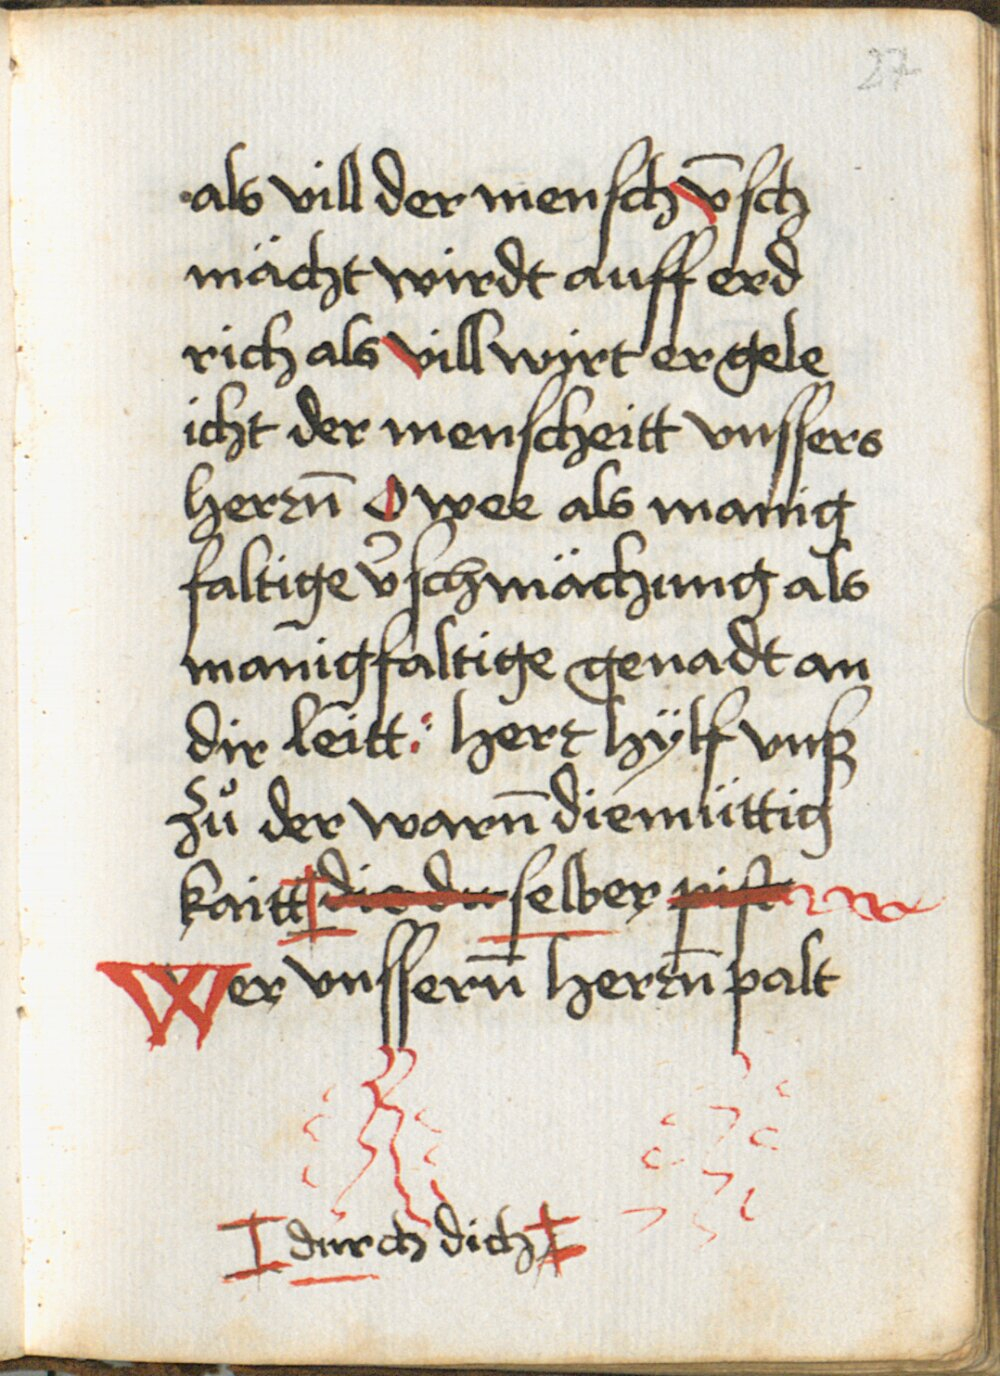 27
als vill der mensch v̄sch
mächt wirdt auff erd
rich als vill wirt er gele
icht der menscheitt vnssers
herrn̄ O wee als manig
faltige v̄schmächung als
manīgfaltige genadt an
dir leitt : herr hÿlf vnß
zů der warn̄ diemüttig
kaitt die du selber pist
Wer vnssern̄ herrn̄ palt
durch dich